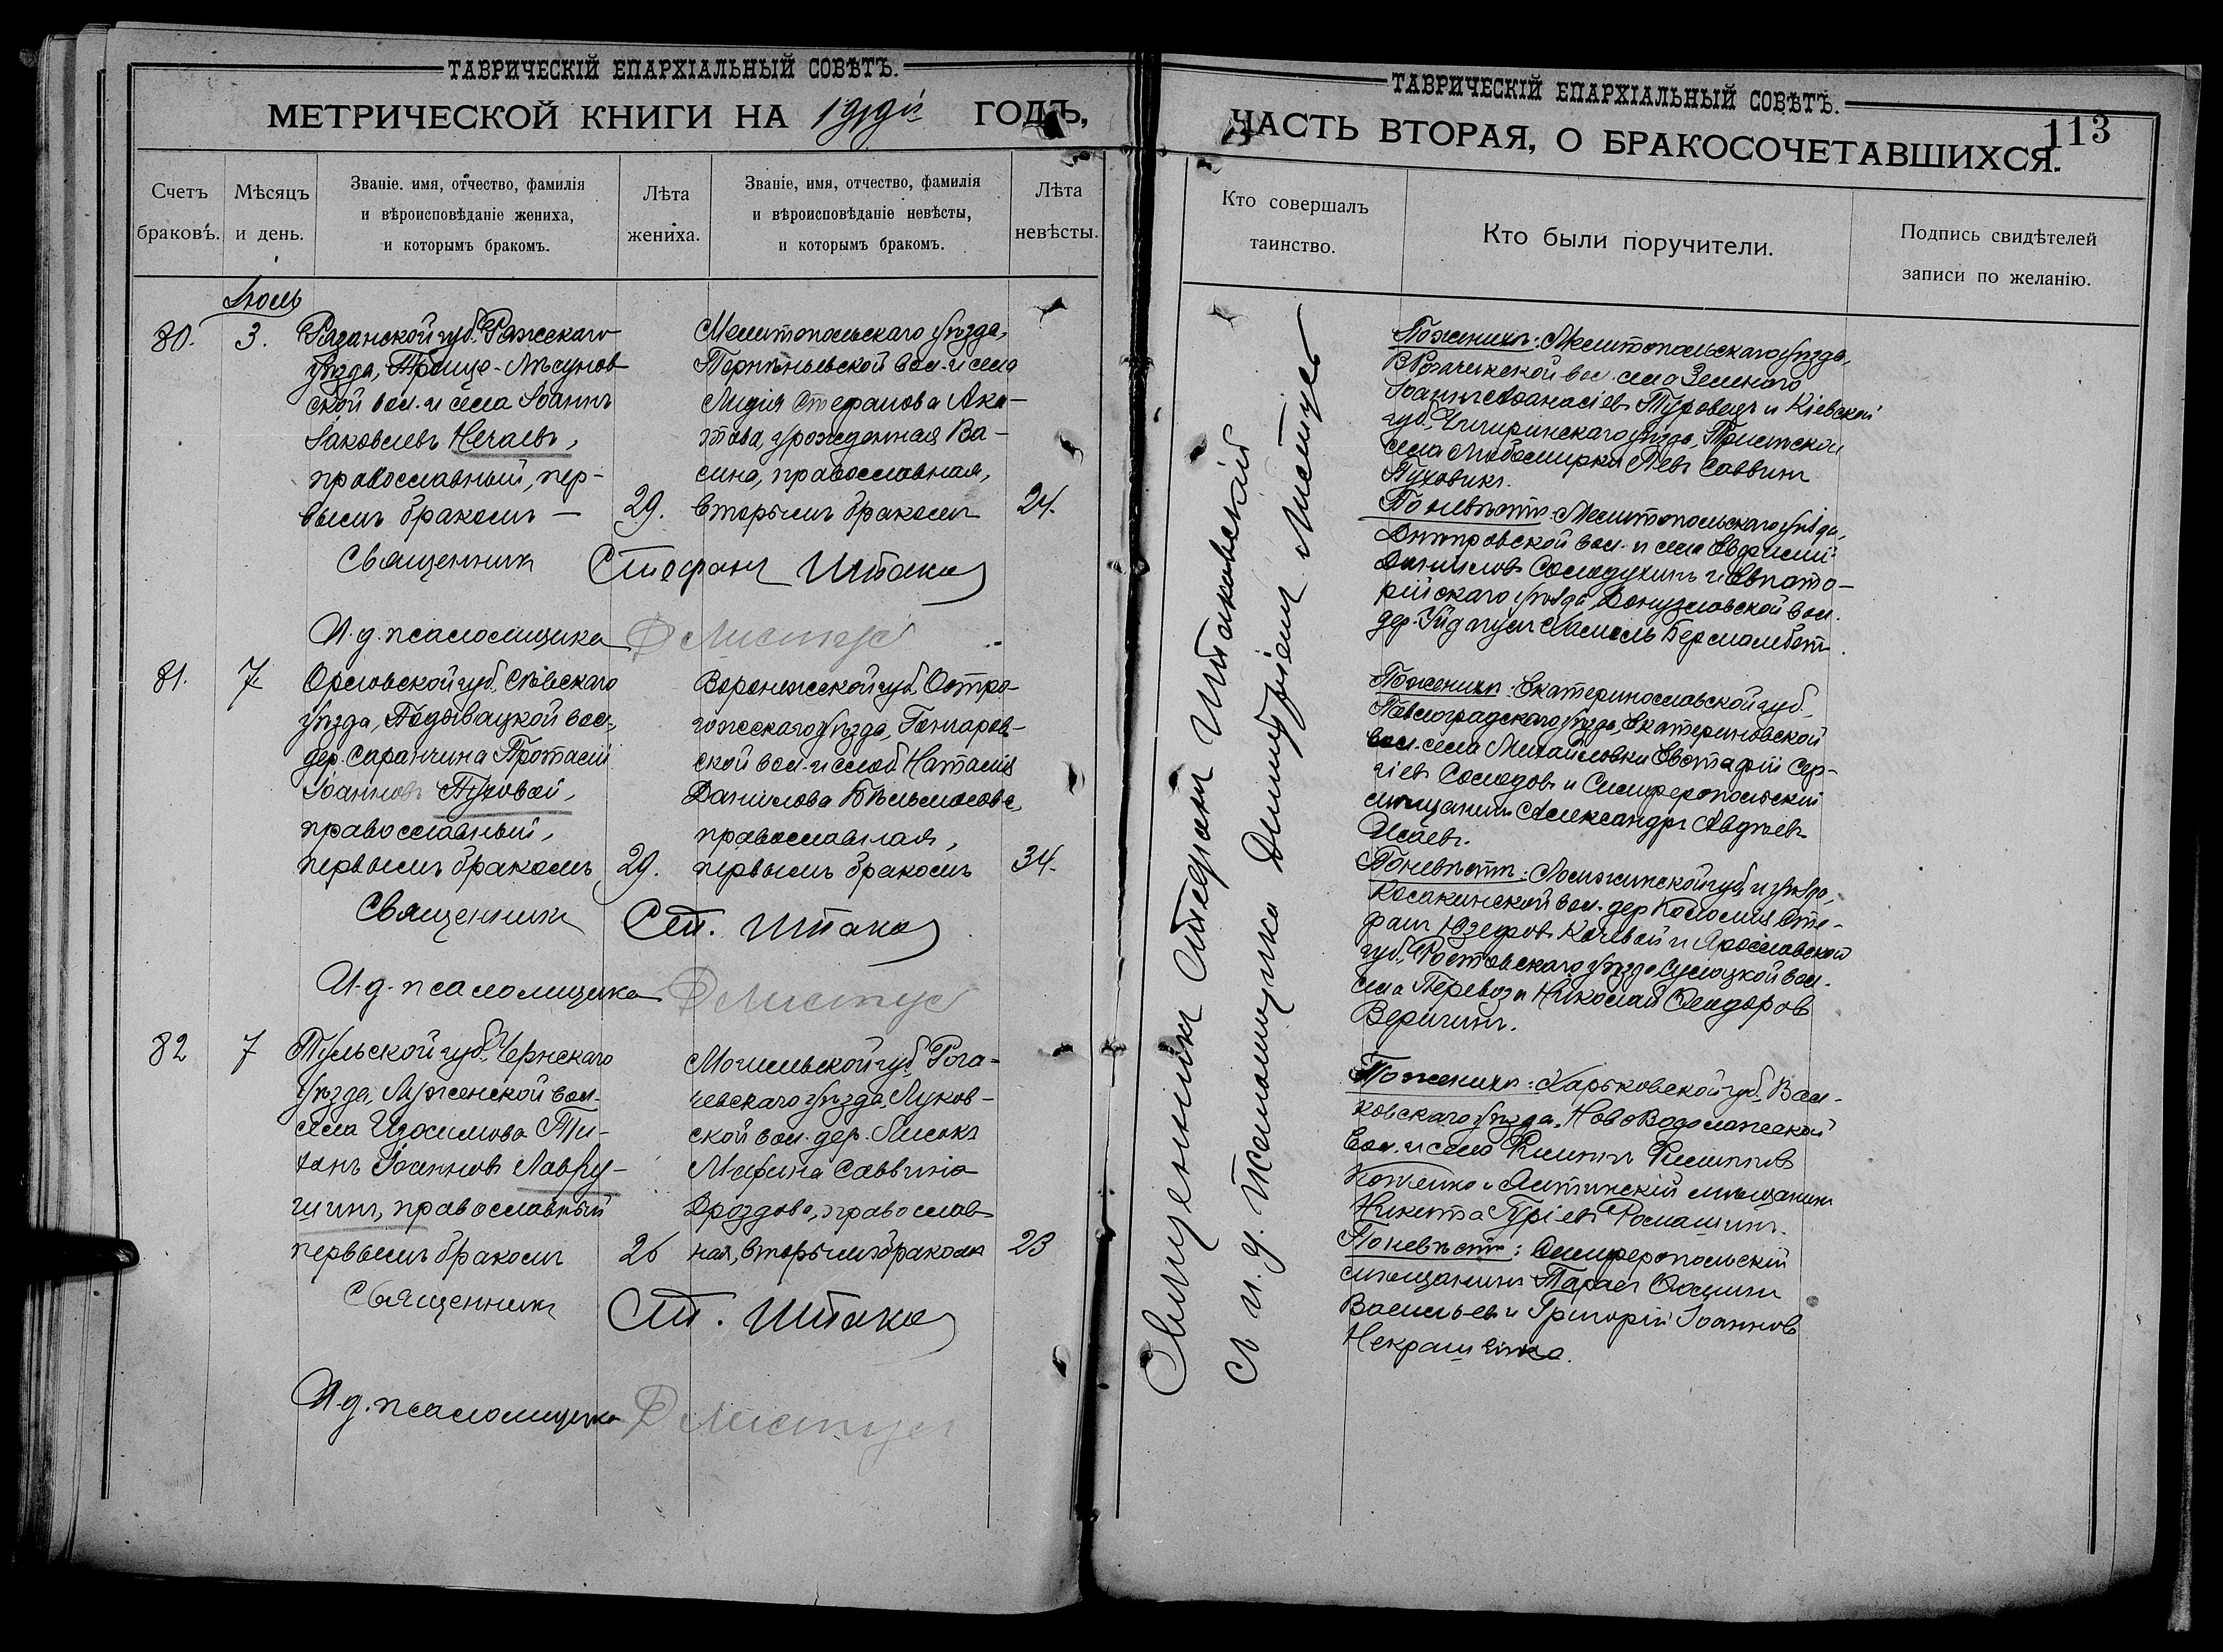 ТАВРИЧЕСКІЙ ЕПАРХІАЛЬНЫЙ СОВѢТЪ.
МЕТРИЧЕСКОЙ КНИГИ НА ГОДЪ,
Счетъ браковъ.
Мѣсяцъ и день.
Званіе. имя, отчество, фамилія
и вѣроисповѣданіе жениха,
и которымъ бракомъ.
Лѣта жениха.
Званіе, имя, отчество, фамилія
и вѣроисповѣданіе невѣсты,
и которымъ бракомъ.
Лѣта невѣсты.
Іюль
80.
3.
Рязанской губ. Ряжскаго
уѣзда, Троице-Лѣсунов
ской вол. и села Іоаннъ
Іаковлевъ Нечаевъ,
православный, пер-
вымъ бракомъ —
29.
Мелитопольскаго уѣзда,
вол. и села
Лидія Стефанова Ака-
това, урожденная Ва-
сина, православная,
вторымъ бракомъ
24.
Священникъ Стефанъ Штак
И. д. псаломщика Д Листус
81.
7.
Орловской губ. Сѣвскаго
уѣзда, Подывацкой вол.,
дер. Саранчина Протасій
Іоанновъ Туровой,
православный,
первымъ бракомъ
29.
Воронежской губ. Остро-
гожскаго уѣзда, Гончаров-
ской вол. и слоб. Наталія
Данилова
православная,
первымъ бракомъ
34.
Священникъ Ст. Штак
И. д. псаломщика Д Листус
82
7
Тульской губ. Чернскаго
уѣзда, вол.
села Изосимова Ти-
ханъ Іоанновъ Лавру-
шинъ, православный
первымъ бракомъ
26
Могилевской губ. Рога-
чевскаго уѣзда, Луков-
ской вол. дер. Лиски
Марина Саввина
Дроздова, православ-
ная, вторымъ бракомъ
23
Священникъ Ст. Штак
И. д. псаломщика Д Листус
ТАВРИЧЕСКІЙ ЕПАРХІАЛЬНЫЙ СОВѢТЪ.
113
ЧАСТЬ ВТОРАЯ, О БРАКОСОЧЕТАВШИХСЯ.
Кто совершалъ таинство.
Кто были поручители.
Подпись свидѣтелей
записи по желанію.
Священникъ Стефанъ Штаковскій
съ и. д. псаломщика Димитріемъ Листус
По женихѣ: Мелитопольскаго уѣзда,
вол. села Зеленого
Іоаннъ Аѳанасіевъ Туровецъ и Кіевской
губ. Чигиринскаго уѣзда,
села Любомирки Левъ Саввинъ
Пуховикъ.
По невѣстѣ: Мелитопольскаго уѣзда,
Днѣпровской вол. и села Евфимій
Даниловъ Солодухинъ и Евпато-
рійскаго уѣзда, Донузлавской вол.
дер.
По женихѣ: Екатеринославской губ.
Павлоградскаго уѣзда, Екатериновской
вол. села Михайловки Евстафій Сер-
гіевъ Солодовъ и Симферопольскій
мѣщанинъ Александръ Авдѣевъ
Исаевъ.
По невѣстѣ: Ломжинской губ. и уѣзда,
вол. дер. Коломія Сте-
фанъ Юзефовъ Качевой и Ярославской
губ. Ростовскаго уѣзда, Сулоцкой вол.
села Перевоза Николай Ѳеодоровъ
Веричинъ.
По женихѣ: Харьковской губ. Вал-
ковскаго уѣзда, Ново Водолажской
вол. и села Филиппъ Филипповъ
и Ялтинскій мѣщанинъ
Никита Гуріевъ Ромашинъ.
По невѣстѣ: Симферопольскій
мѣщанинъ Тарасъ Ѳоминъ
Васильевъ и Григорій Іоанновъ